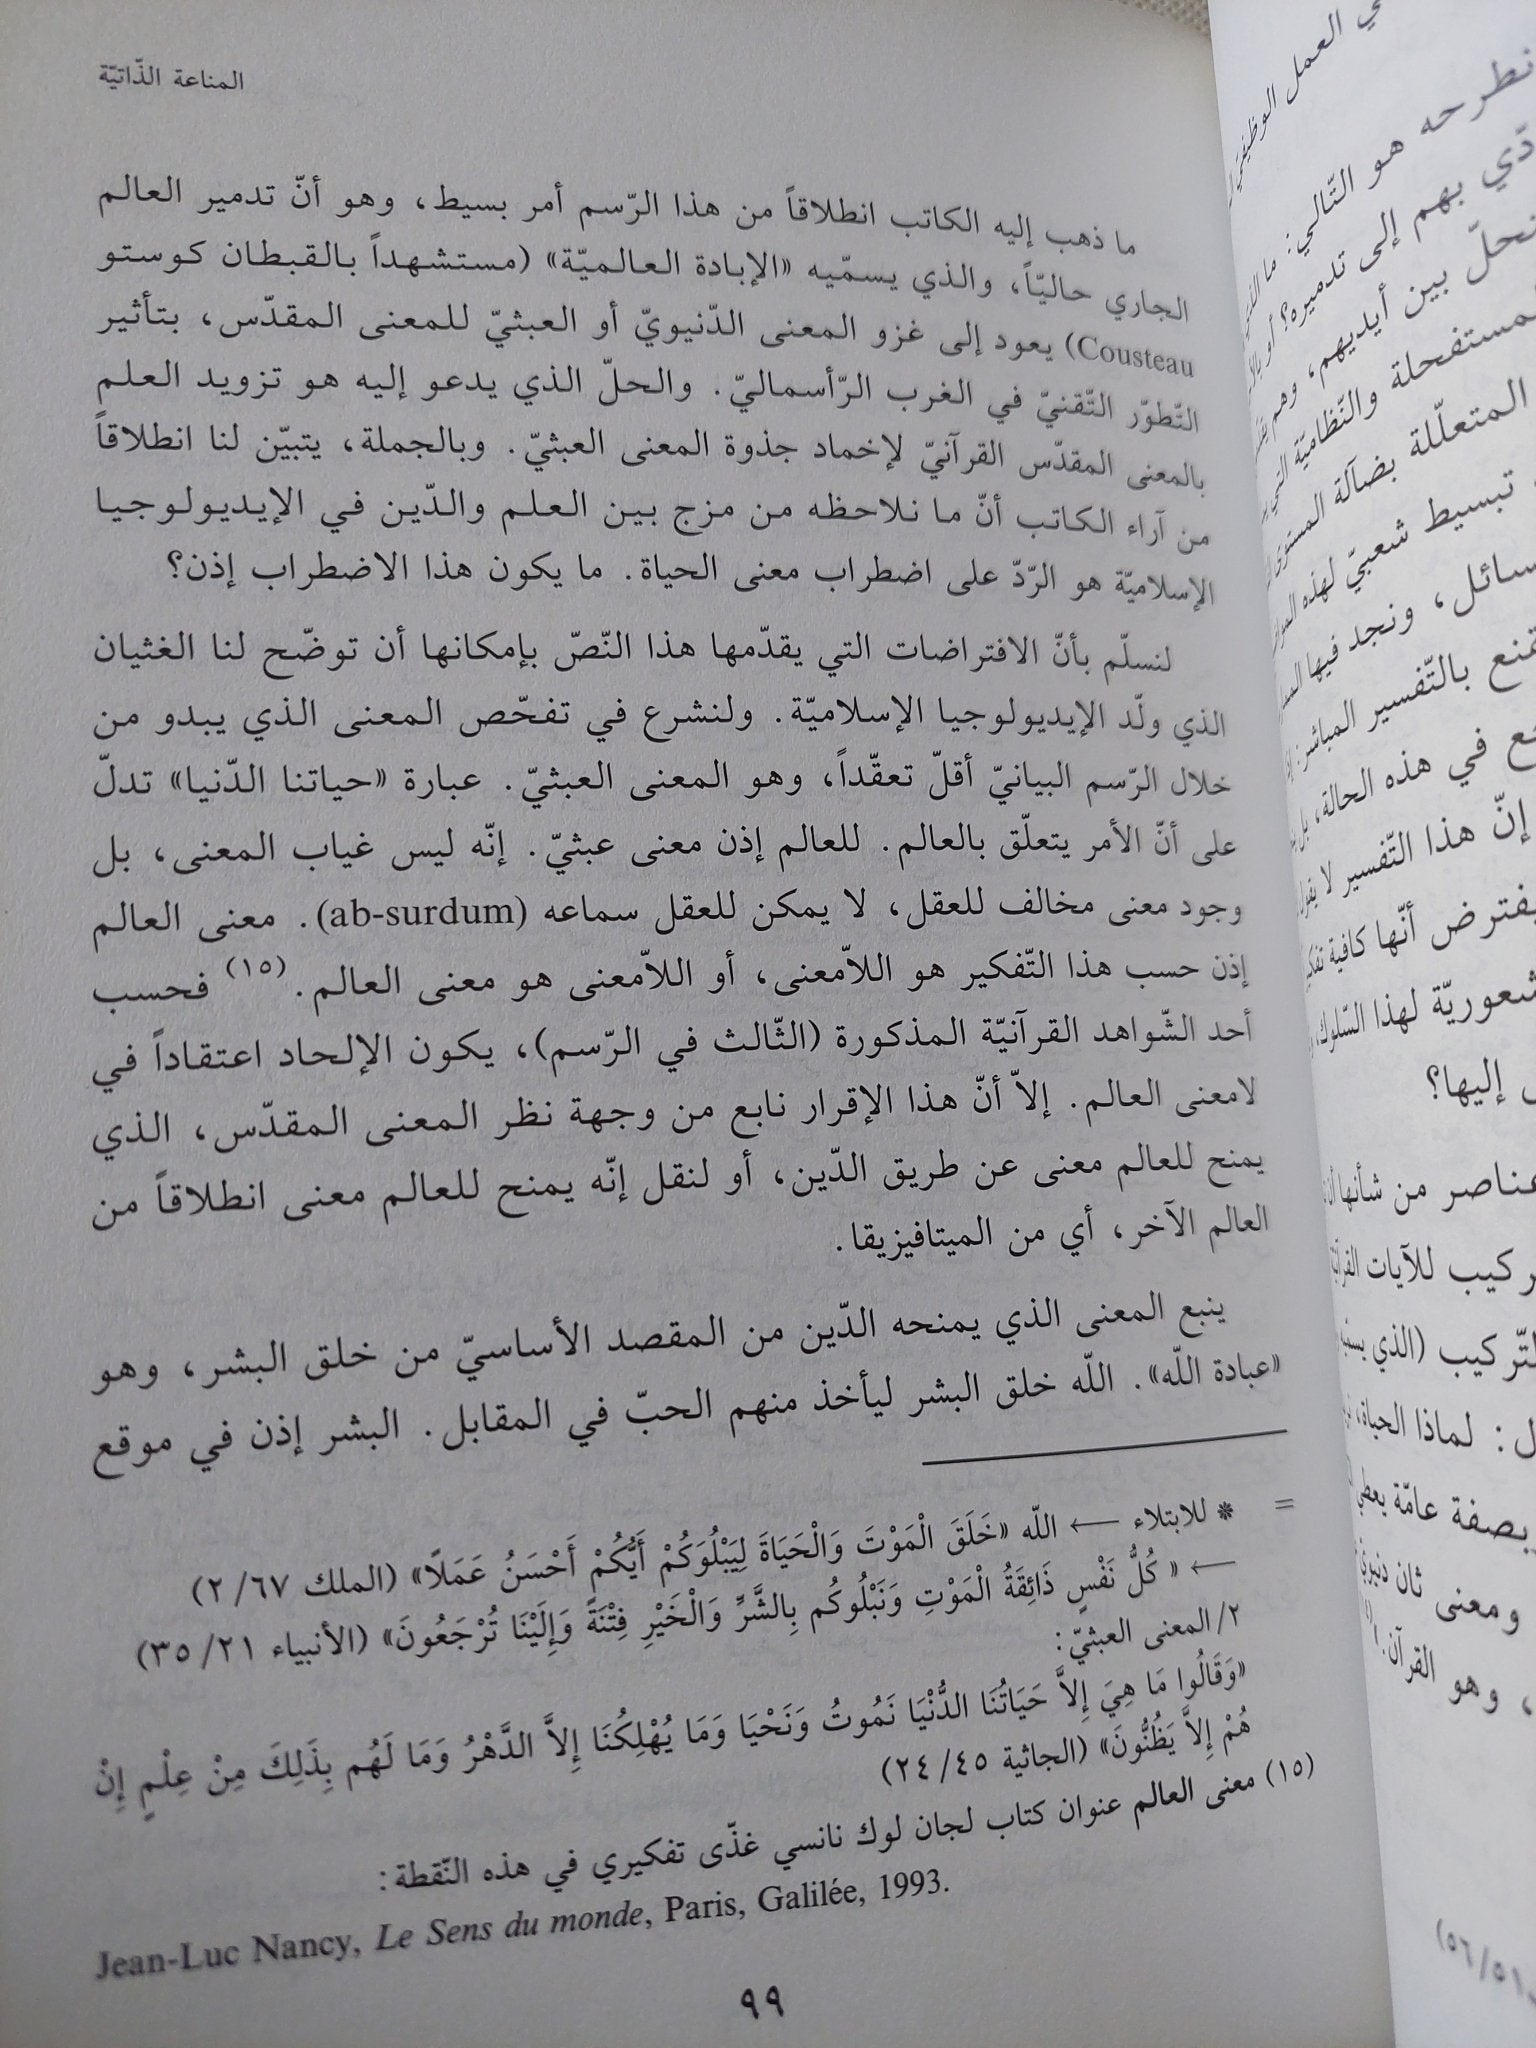 المناعة الذّاتيّة
ما ذهب إليه الكاتب انطلاقاً من هذا الرّسم أمر بسيط، وهو أنّ تدمير العالم
الجاري حاليّاً، والذي يسمّيه «الإبادة العالميّة» (مستشهداً بالقبطان كوستو
Cousteau) يعود إلى غزو المعنى الدّنيويّ أو العبثيّ للمعنى المقدّس، بتأثير
التّطوّر التّقنيّ في الغرب الرّأسماليّ. والحلّ الذي يدعو إليه هو تزويد العلم
بالمعنى المقدّس القرآنيّ لإخماد جذوة المعنى العبثيّ. وبالجملة، يتبيّن لنا انطلاقاً
من آراء الكاتب أنّ ما نلاحظه من مزج بين العلم والدّين في الإيديولوجيا
الإسلاميّة هو الرّدّ على اضطراب معنى الحياة. ما يكون هذا الاضطراب إذن؟
لنسلّم بأنّ الافتراضات التي يقدّمها هذا النّصّ بإمكانها أن توضّح لنا الغثيان
الذي ولّد الإيديولوجيا الإسلاميّة. ولنشرع في تفحّص المعنى الذي يبدو من
خلال الرّسم البيانيّ أقلّ تعقّداً، وهو المعنى العبثيّ. عبارة «حياتنا الدّنيا» تدلّ
على أنّ الأمر يتعلّق بالعالم. للعالم إذن معنى عبثيّ. إنّه ليس غياب المعنى، بل
وجود معنى مخالف للعقل، لا يمكن للعقل سماعه (ab-surdum). معنى العالم
إذن حسب هذا التّفكير هو اللاّمعنى، أو اللاّمعنى هو معنى العالم.(١٥) فحسب
أحد الشّواهد القرآنيّة المذكورة (الثّالث في الرّسم)، يكون الإلحاد اعتقاداً في
لامعنى العالم. إلاّ أنّ هذا الإقرار نابع من وجهة نظر المعنى المقدّس، الذي
يمنح للعالم معنى عن طريق الدّين، أو لنقل إنّه يمنح للعالم معنى انطلاقاً من
العالم الآخر، أي من الميتافيزيقا.
ينبع المعنى الذي يمنحه الدّين من المقصد الأساسيّ من خلق البشر، وهو
«عبادة اللّه». اللّه خلق البشر ليأخذ منهم الحبّ في المقابل. البشر إذن في موقع
= * للابتلاء ← اللّه «خَلَقَ الْمَوْتَ وَالْحَيَاةَ لِيَبْلُوَكُمْ أَيُّكُمْ أَحْسَنُ عَمَلًا» (الملك ٦٧/ ٢)
← « كُلُّ نَفْسٍ ذَائِقَةُ الْمَوْتِ وَنَبْلُوكُم بِالشَّرِّ وَالْخَيْرِ فِتْنَةً وَإِلَيْنَا تُرْجَعُونَ» (الأنبياء ٢١/ ٣٥)
٢/ المعنى العبثيّ:
«وَقَالُوا مَا هِيَ إِلاَّ حَيَاتُنَا الدُّنْيَا نَمُوتُ وَنَحْيَا وَمَا يُهْلِكُنَا إِلاَّ الدَّهْرُ وَمَا لَهُم بِذَلِكَ مِنْ عِلْمٍ إِنْ
هُمْ إِلاَّ يَظُنُّونَ» (الجاثية ٤٥/ ٢٤)
(١٥) معنى العالم عنوان كتاب لجان لوك نانسي غذّى تفكيري في هذه النّقطة:
Jean-Luc Nancy, Le Sens du monde, Paris, Galilée, 1993.
٩٩
العمل الوظيفيّ
نطرحه هو التّالي: ما
بهم إلى تدميره؟ أو
بين أيديهم، وهم
المستفحلة والنّظاميّة التي
المتعلّلة بضآلة المستوى
تبسيط شعبيّ لهذه
ونجد فيها
بالتّفسير المباشر:
في هذه الحالة، بل
إنّ هذا التّفسير لا
يفترض أنّها كافية
لهذا السّلوك،
إليها؟
عناصر من شأنها
للآيات
(الذي
لماذا الحياة،
بصفة عامّة يعطي
ومعنى ثان
وهو القرآن.